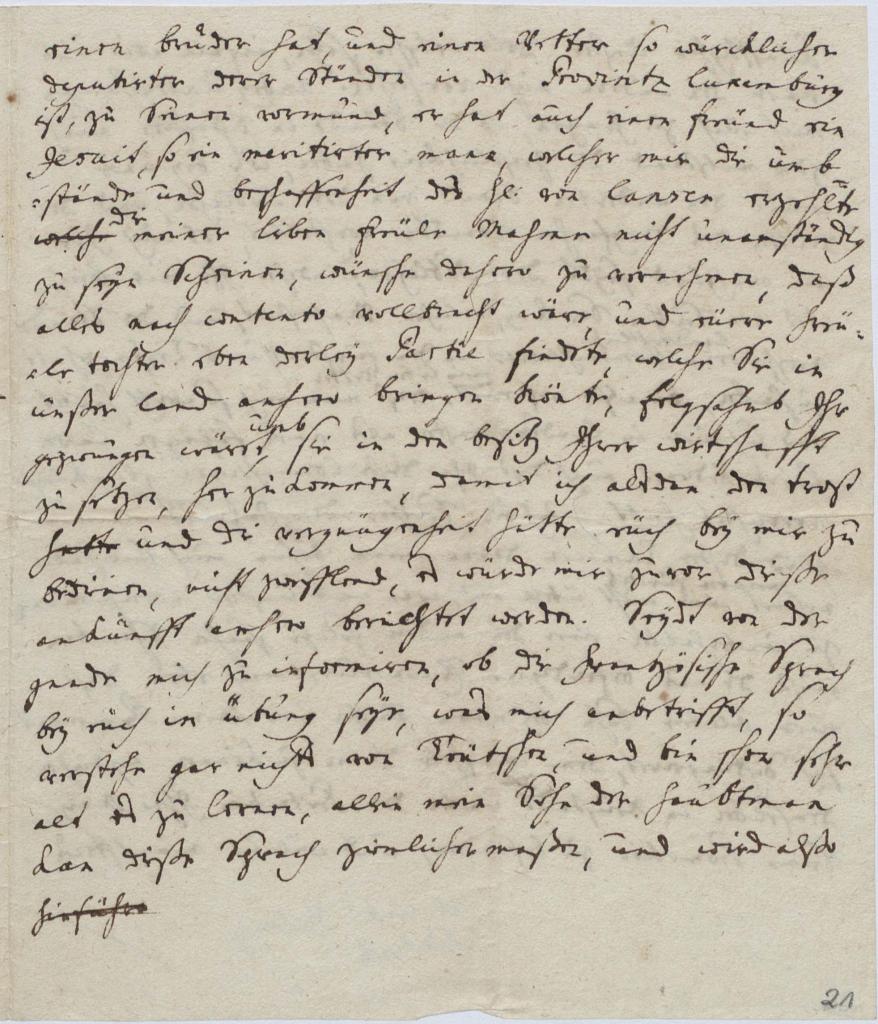 einen brůder hat, und einen Vetter so würcklicher
deputirter derer Ständen in der Provintz Luxemburg
ist, zu Seinen vormund, er hat auch einen freünd ein
Jesuit, so ein meritirter mann, welcher mir die umb-
stände und beschaffenheit des H: von Lanzen erzehlte
welche die meiner liben freüle Mahmen nicht unanständig
zu seyn Scheinen, wünsche dahero zu vernehmen, daß
alles nach contento vollbracht wäre, und eüere freü-
ele tochter eben derley Partie findete, welche Sie in
unßer land anhero bringen könte, folgsahmb Ihr
gezwungen wäret umb sie in den besitz Ihrer wirtschafft
zu setzen, her zu kommen, damit ich alsdan den trost
hatte und die vergnügenheit hätte eüch bey mir zu
bedienen, nicht zweifflend, es würde mir zuvor dieße
ankunfft anhero berichtet werden. Seydt von der
gnade mich zu informiren, ob die frantzösische Sprach
bey eüch in übung seye, was mich anbetrifft, so
verstehe gar nichts von Teütschen, und bin schon sehr
alt es zu lernen, allein mein Sohn der haubtman
kan dieße Sprach zimlicher maßen, und wird alßo
hinführo
21